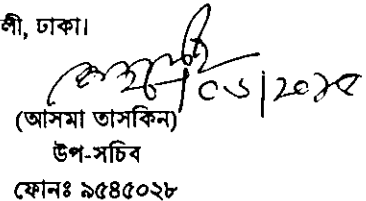 লী, ঢাকা।
(আসমা তাসকিন)
উপ-সচিব
ফোনঃ ৯৫৪৫০২৮